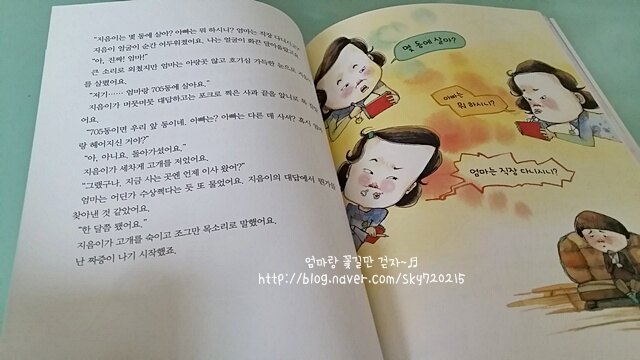 "지음이는 몇 동에 살아? 아빠는 뭐 하시니? 엄마는 직장 다니시니?"
지음이 얼굴이 순간 어두워졌어요. 나는 얼굴이 화끈 달아올랐고요.
"아, 진짜! 엄마!"
큰 소리로 외쳤지만 엄마는 아랑곳 않고 호기심 가득한 눈으로
를 살폈어요.
"저기…… 엄마랑 705동에 살아요."
지음이가 머뭇머뭇 대답하고는 포크로 찍은 사과 끝을 앞니로
어요.
"705동이면 우리 앞 동이네. 아빠는? 아빠는 다른 데 사셔? 혹시
랑 헤어지신 거야?"
"아, 아니요. 돌아가셨어요."
지음이가 세차게 고개를 저었어요.
"그랬구나. 지금 사는 곳엔 언제 이사 왔어?"
엄마는 어딘가 수상쩍다는 듯 또 물었어요. 지음이의 대답에서 뭔가를
찾아낸 것 같았어요.
"한 달쯤 됐어요."
지음이가 고개를 숙이고 조그만 목소리로 말했어요.
난 짜증이 나기 시작했죠.
몇 동에 살아?
아빠는
뭐 하시니?
엄마는 직장 다니시니?
엄마랑 꽃길만 걷자~♬
http://blog.naver.com/sky720215